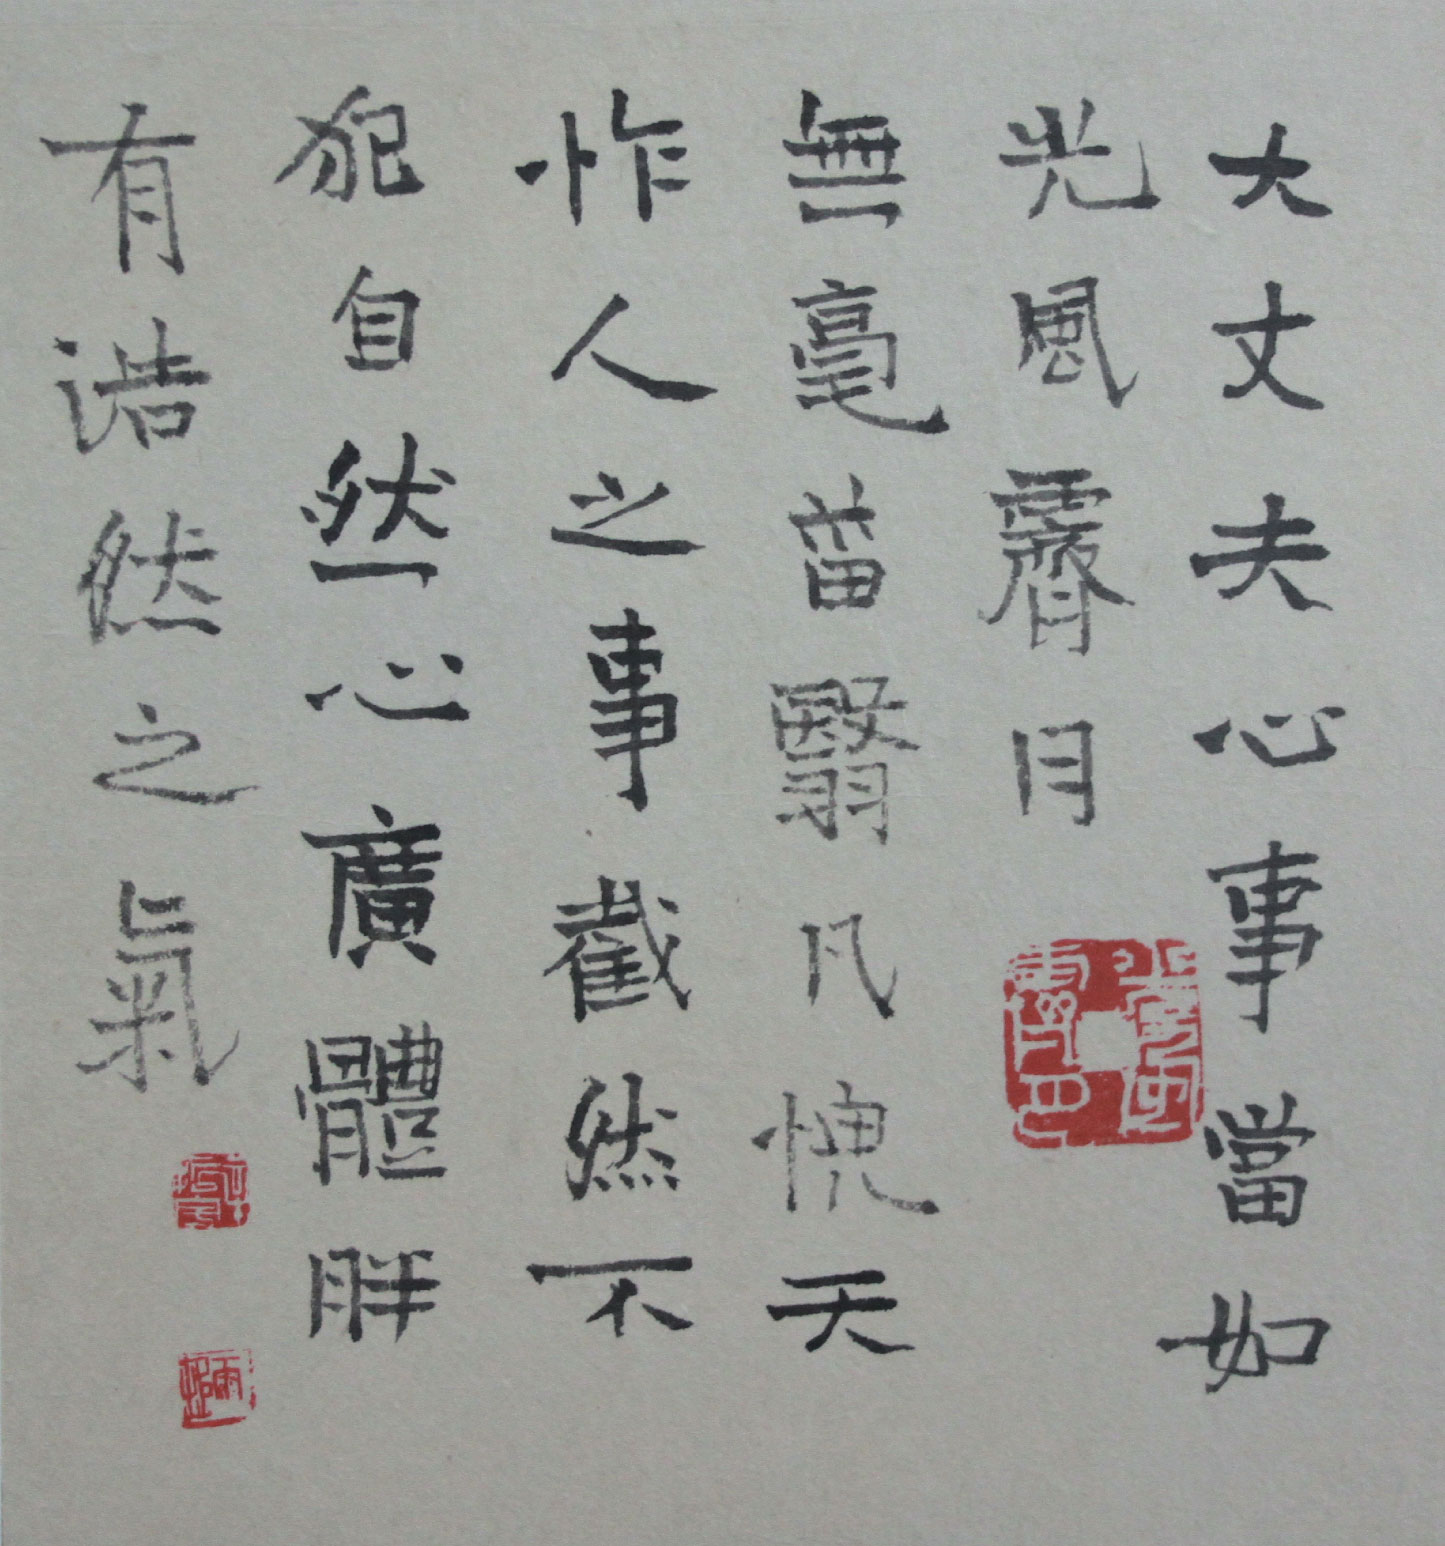 大丈夫心事當如
光風霽月
無毫菑翳凡愧天
怍人之事截然不
犯自然心廣體胖
有浩然之氣